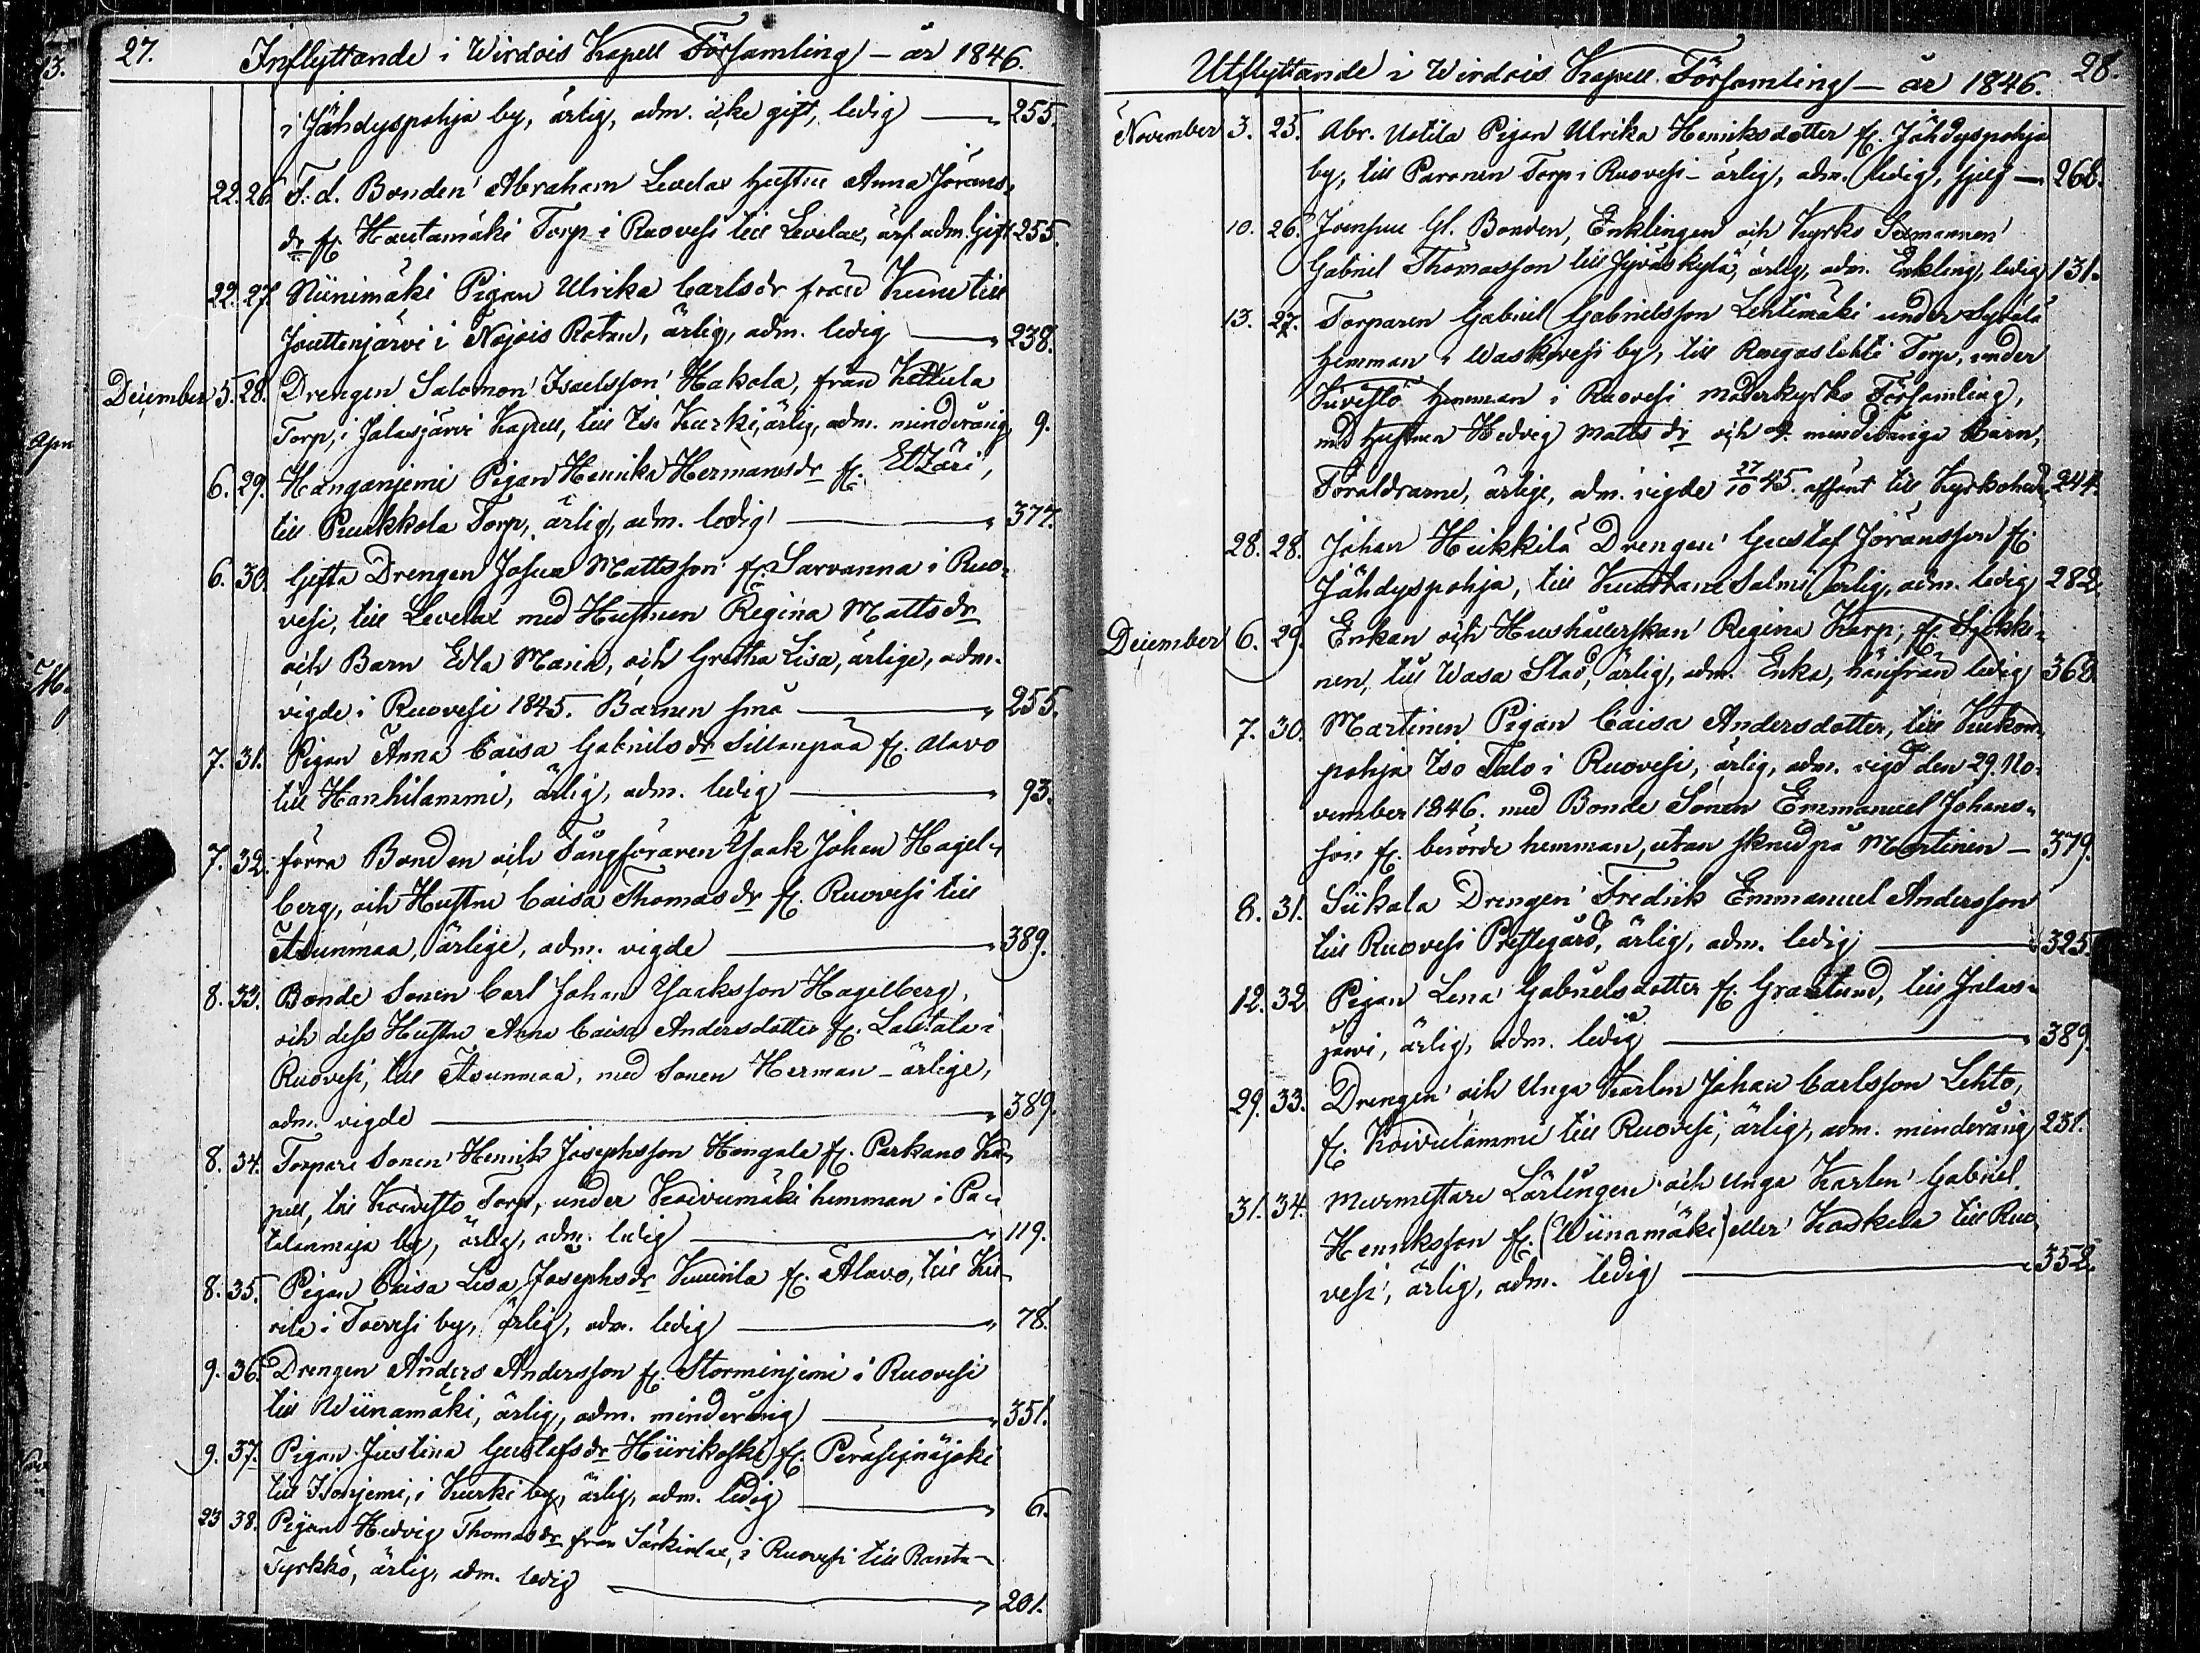 27. Inflyttande i Wirdois Kapell Församling – år 1846.
i Jähdyspohja by, ärlig, adm. icke gift, ledig — 255.
22. 26. F. d. Bonden Abraham Levelax Hustru Anna Jörans-
dr fr. Hautamäki Torp i Ruovesi till Levelax, ärl. adm. Gift 255.
22. 27. Niinimäki Pigan Ulrika Carlsdr från Kuru till
Jouttenjärvi i Rotan, ärlig, adm. ledig — 238.
December 5. 28. Drengen Salomon Isaelsson Hakola, från Kettula
Torp, i Jalasjärvi Kapell, till Iso Kurki, ärlig, adm. minderårig 9.
6. 29. Hanganjemi Pigan Henrika Hermansdr fr. Etzäri,
till Puukkola Torp, ärlig, adm. ledig — 377.
6. 30. Gifta Drengen Josua Mattsson fr. Sarvanna i Ruo-
vesi, till Levelax med Hustrun Regina Mattsdr
och Barn Edla Maria, och Gretha Lisa, ärlige, adm.
vigde i Ruovesi 1845. Barnen små — 255.
7. 31. Pigan Anna Caisa Gabrielsdr Sillanpää fr. Alavo
till Hanhilammi, ärlig, adm. ledig — 93.
7. 32. förra Bonden och Fångföraren Isaak Johan Hagel-
berg, och Hustru Caisa Thomasdr fr. Ruovesi till
Asunmaa, ärlige, adm. vigde — 389.
8. 33. Bonde Sonen Carl Johan Isaaksson Hagelberg,
och dess Hustru Anna Caisa Andersdotter fr. Lautala i
Ruovesi, till Asunmaa, med Sonen Herman – ärlige,
adm. vigde — 389.
8. 34. Torpare Sonen Henrik Josephsson Hongala fr. Parkano Ka-
pell, till Koivisto Torp, under Koivumäki hemman i Pa-
talanmaja by, ärlig, adm. ledig — 119.
8. 35. Pigan Caisa Lisa Josephsdr Kuurila fr. Alavo, till
i Toivesi by, ärlig, adm. ledig — 78.
9. 36. Drengen Anders Andersson fr. Storminjemi i Ruovesi
till Wiinamäki, ärlig, adm. minderårig — 351.
9. 37. Pigan Justina Gustafsdr Hiirikoski fr. Peräseinäjoki
till Isonjemi, i Kurki by, ärlig, adm. ledig — 6.
23. 38. Pigan Hedvig Thomasdr från Särkinlax, i Ruovesi till Ranta-
Tyrkkö, ärlig, adm. ledig — 201.
Utflyttande i Wirdois Kapell Församling – år 1846. 28.
November 3. 25. Abr. Uotila Pigan Ulrika Henriksdotter fr. Jähdyspohja
by, till Paronen Torp i Ruovesi – ärlig, adm. ledig, — 268.
10. 26. Joensuu Gl. Bonden, Enklingen och Kyrko Sexmannen
Gabriel Thomasson till Jyväskylä, ärlig, adm. Enkling, ledig 131.
13. 27. Torparen Gabriel Gabrielsson Lehtimäki under
hemman i Waskivesi by, till Rengaslehti Torp, under
Suvisto hemman i Ruovesi Moderkyrko Församling,
med Hustrun Hedvig Mattsdr och 4. minderåriga Barn,
Föräldrarne, ärlige, adm. vigde 27/10 45. afsänt till Kyrkoherd. 244.
28. 28. Johan Heikkilä Drengen Gustaf Jöransson fr.
Jähdyspohja, till Salmi ärlig, adm. ledig 282.
December 6. 29. Enkan och Hushållerskan Regina Karp, fr. Sjékki-
nen, till Wasa Stad, ärlig, adm. Enka, härifrån ledig 368.
7. 30. Martinen Pigan Caisa Andersdotter, till
pohja Iso Talo i Ruovesi, ärlig, adm. vigd den 29. No-
vember 1846. med Bonde Sonen Emmanuel Johans-
son fr. berörde hemman, utan skrud på Martinen — 379.
8. 31. Siikala Drengen Fredrik Emmanuel Andersson
till Ruovesi Prestegård, ärlig, adm. ledig — 325.
12. 32. Pigan Lena Gabrielsdotter fr. Granlund, till Jalas-
järvi, ärlig, adm. ledig — 389.
29. 33. Drengen och Unga Karlen Johan Carlsson Lehto,
fr. Koivulammi till Ruovesi, ärlig, adm. minderårig 231.
31. 34. Murmestare Lärlingen och Unga Karlen Gabriel
Henriksson fr. (Wiinamäki) eller Koskela till Ruo-
vesi, ärlig, adm. ledig — 352.